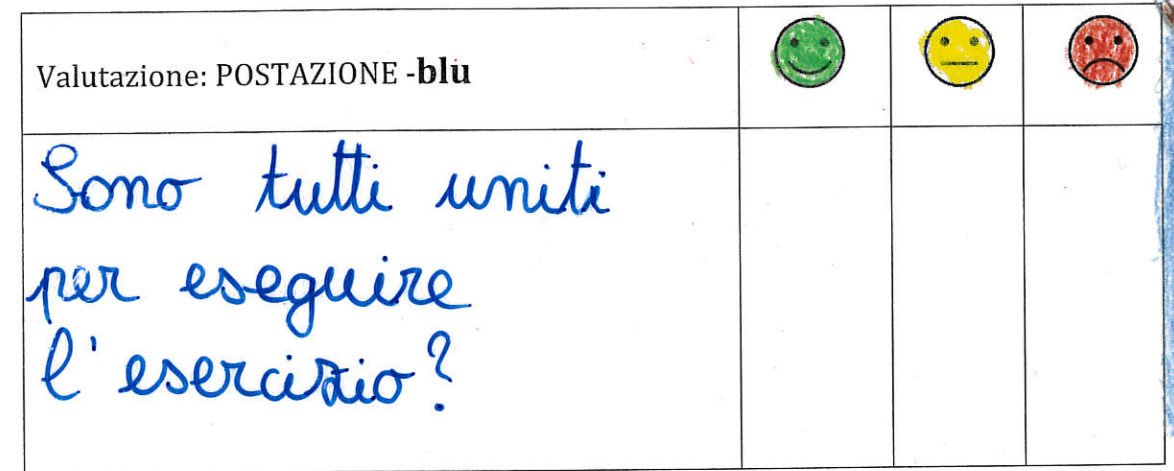 Valutazione: POSTAZIONE -blu
Sono tutti uniti
per eseguire
l'esercizio?